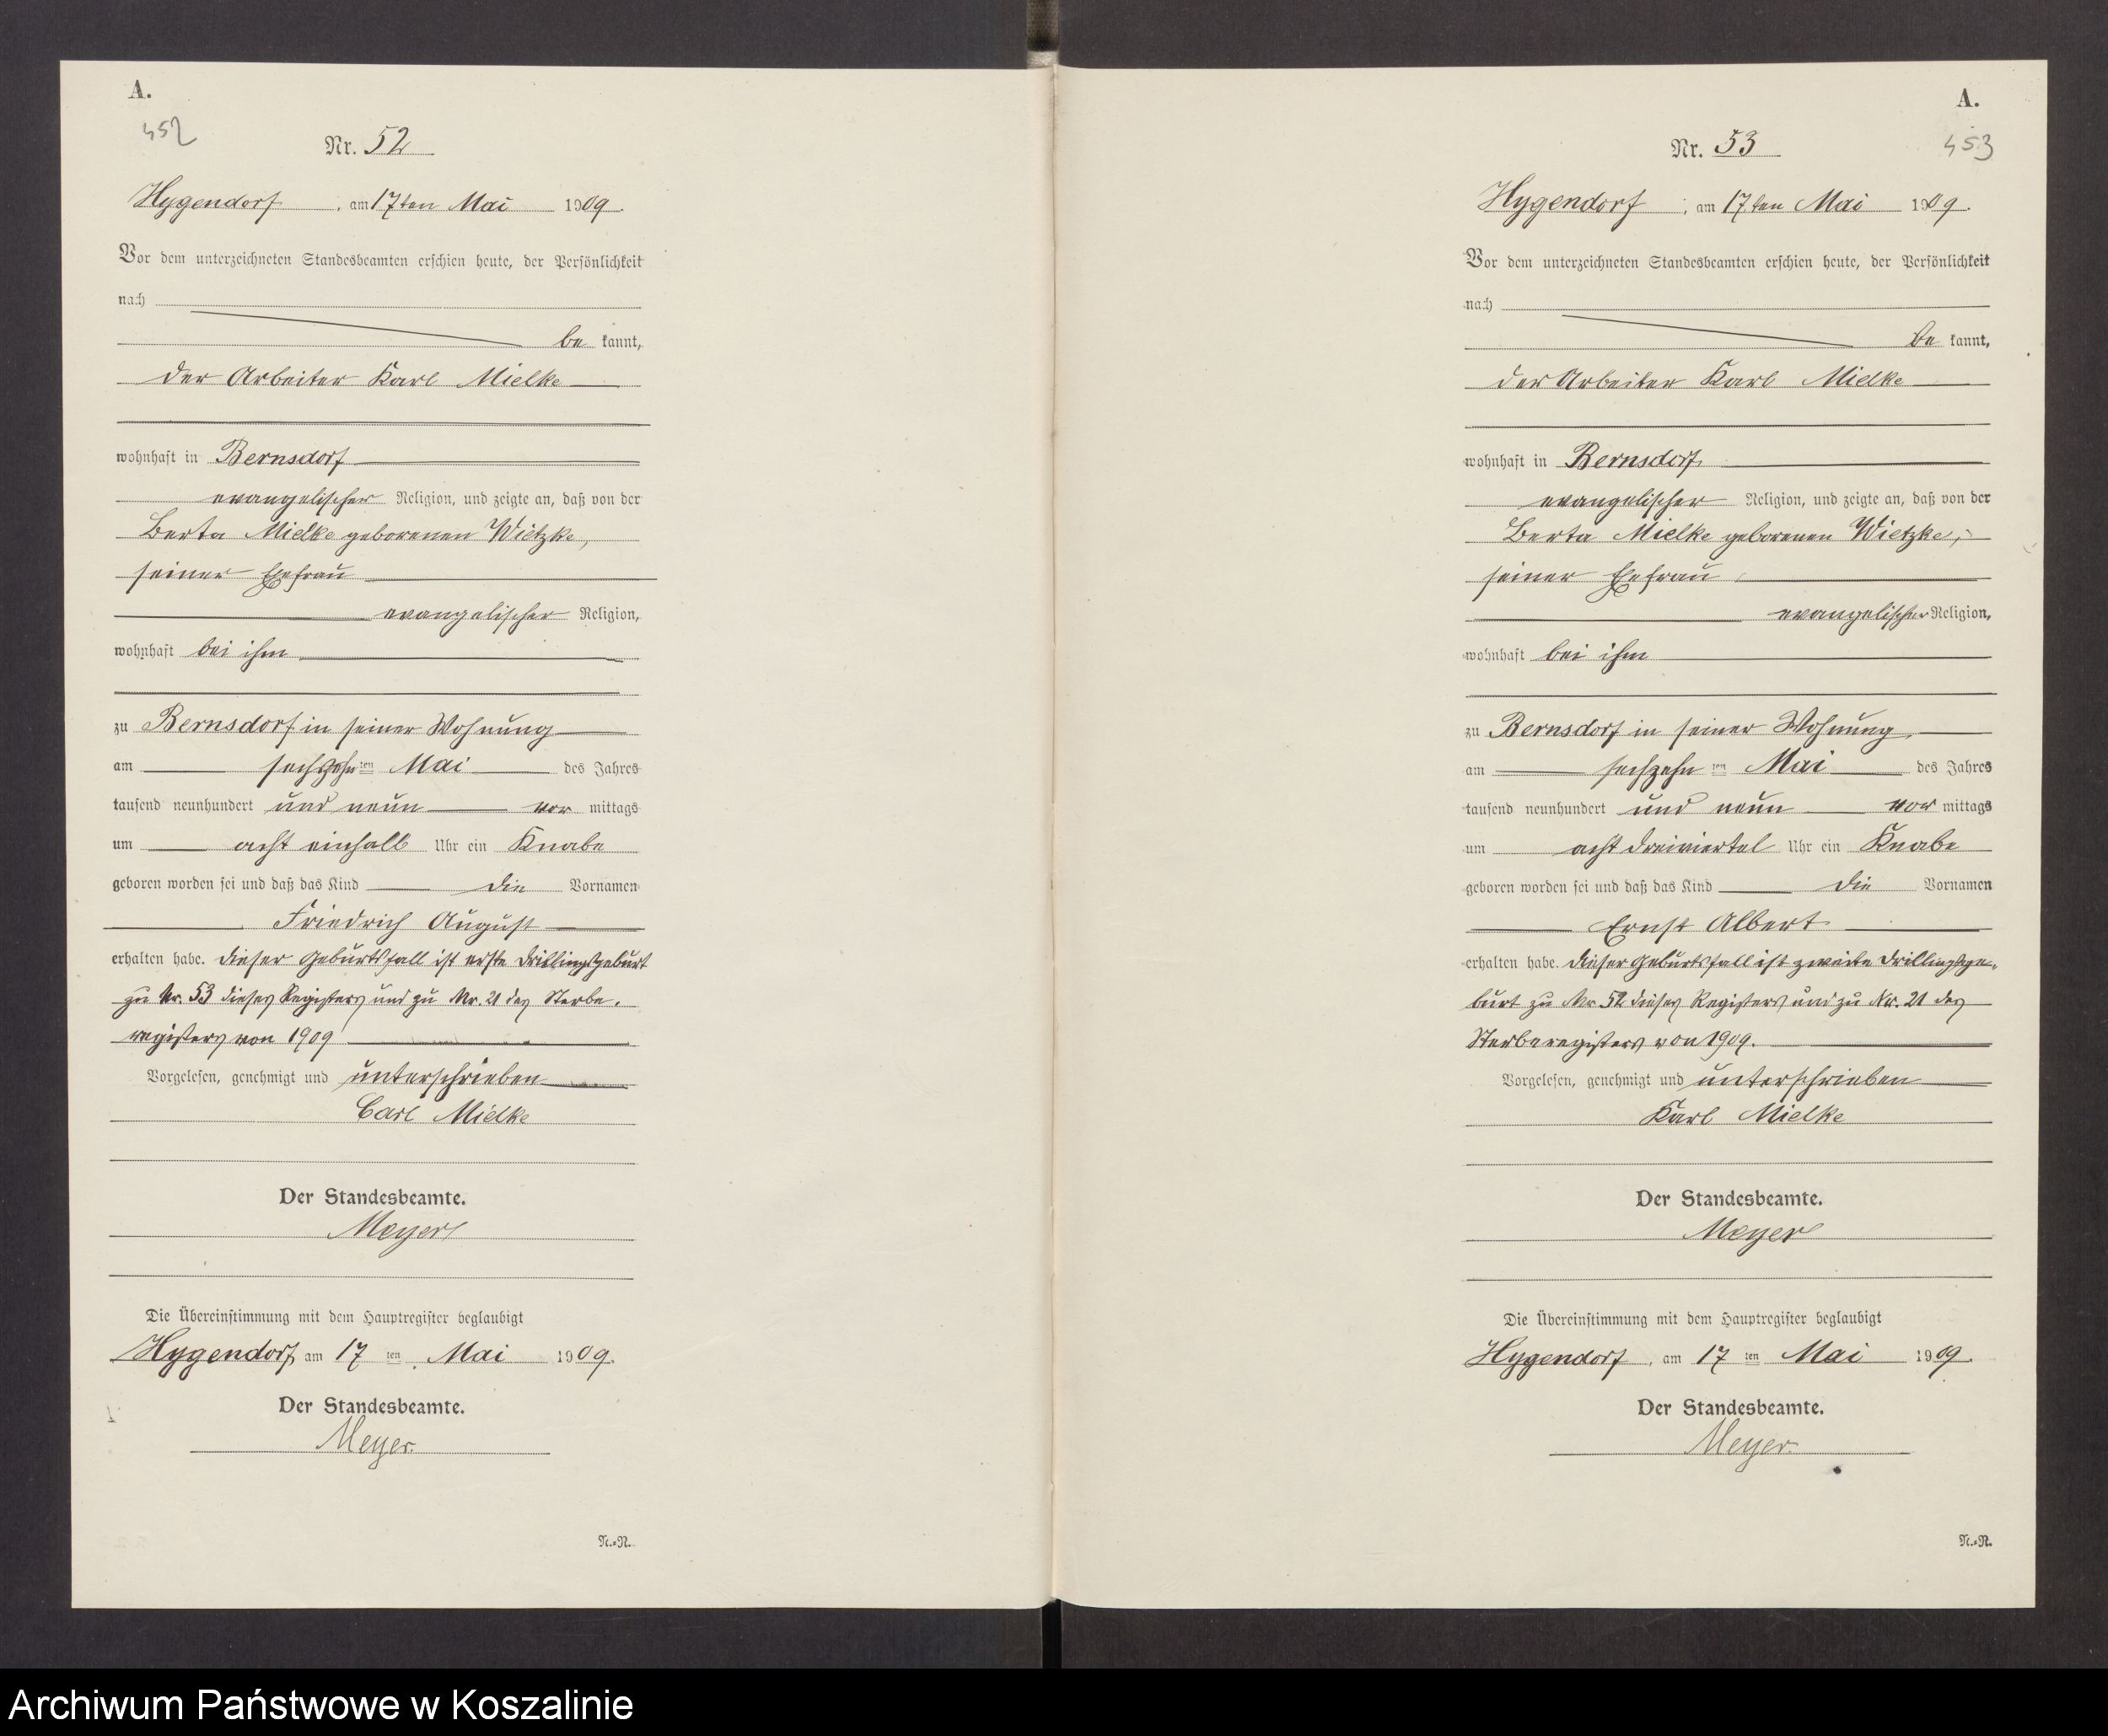 A.
452
Nr. 52
Hygendorf, am 17ten Mai 1909.
Vor dem unterzeichneten Standesbeamten erschien heute, der Persönlichkeit
nach
be kannt,
der Arbeiter Karl Mielke
wohnhaft in Bernsdorf
evangelischer Religion, und zeigte an, daß von der
Berta Mielke geborenen Wietzke,
seiner Ehefrau
evangelischer Religion,
wohnhaft bei ihm
zu Bernsdorf in seiner Wohnung
am sechszehn ten Mai des Jahres
tausend neunhundert und neun vor mittags
um acht einhalb Uhr ein Knabe
geboren worden sei und daß das Kind die Vornamen
Friedrich August
erhalten habe. Dieser Geburtsfall ist erste Drillingsgeburt
zu Nr. 53 dieses Registers und zu Nr. 21 des Sterbe-
registers von 1909
Vorgelesen, genehmigt und unterschrieben
Carl Mielke
Der Standesbeamte.
Meyer
Die Übereinstimmung mit dem Hauptregister beglaubigt
Hygendorf, am 17 ten Mai 1909.
Der Standesbeamte.
Meyer.
N.=N.
A.
453
Nr. 53
Hygendorf, am 17ten Mai 1909.
Vor dem unterzeichneten Standesbeamten erschien heute, der Persönlichkeit
nach
be kannt,
der Arbeiter Karl Mielke
wohnhaft in Bernsdorf
evangelischer Religion, und zeigte an, daß von der
Berta Mielke geborenen Wietzke,
seiner Ehefrau
evangelischer Religion,
wohnhaft bei ihm
zu Bernsdorf in seiner Wohnung
am sechzehn ten Mai des Jahres
tausend neunhundert und neun vor mittags
um acht dreiviertel Uhr ein Knabe
geboren worden sei und daß das Kind die Vornamen
Ernst Albert
erhalten habe. Dieser Geburtsfall ist zweite Drillingsge-
burt zu Nr. 52 dieses Registers und zu Nr. 21 des
Sterberegisters von 1909.
Vorgelesen, genehmigt und unterschrieben
Karl Mielke
Der Standesbeamte.
Meyer
Die Übereinstimmung mit dem Hauptregister beglaubigt
Hygendorf, am 17 ten Mai 1909.
Der Standesbeamte.
Meyer.
N.=N.
Archiwum Państwowe w Koszalinie